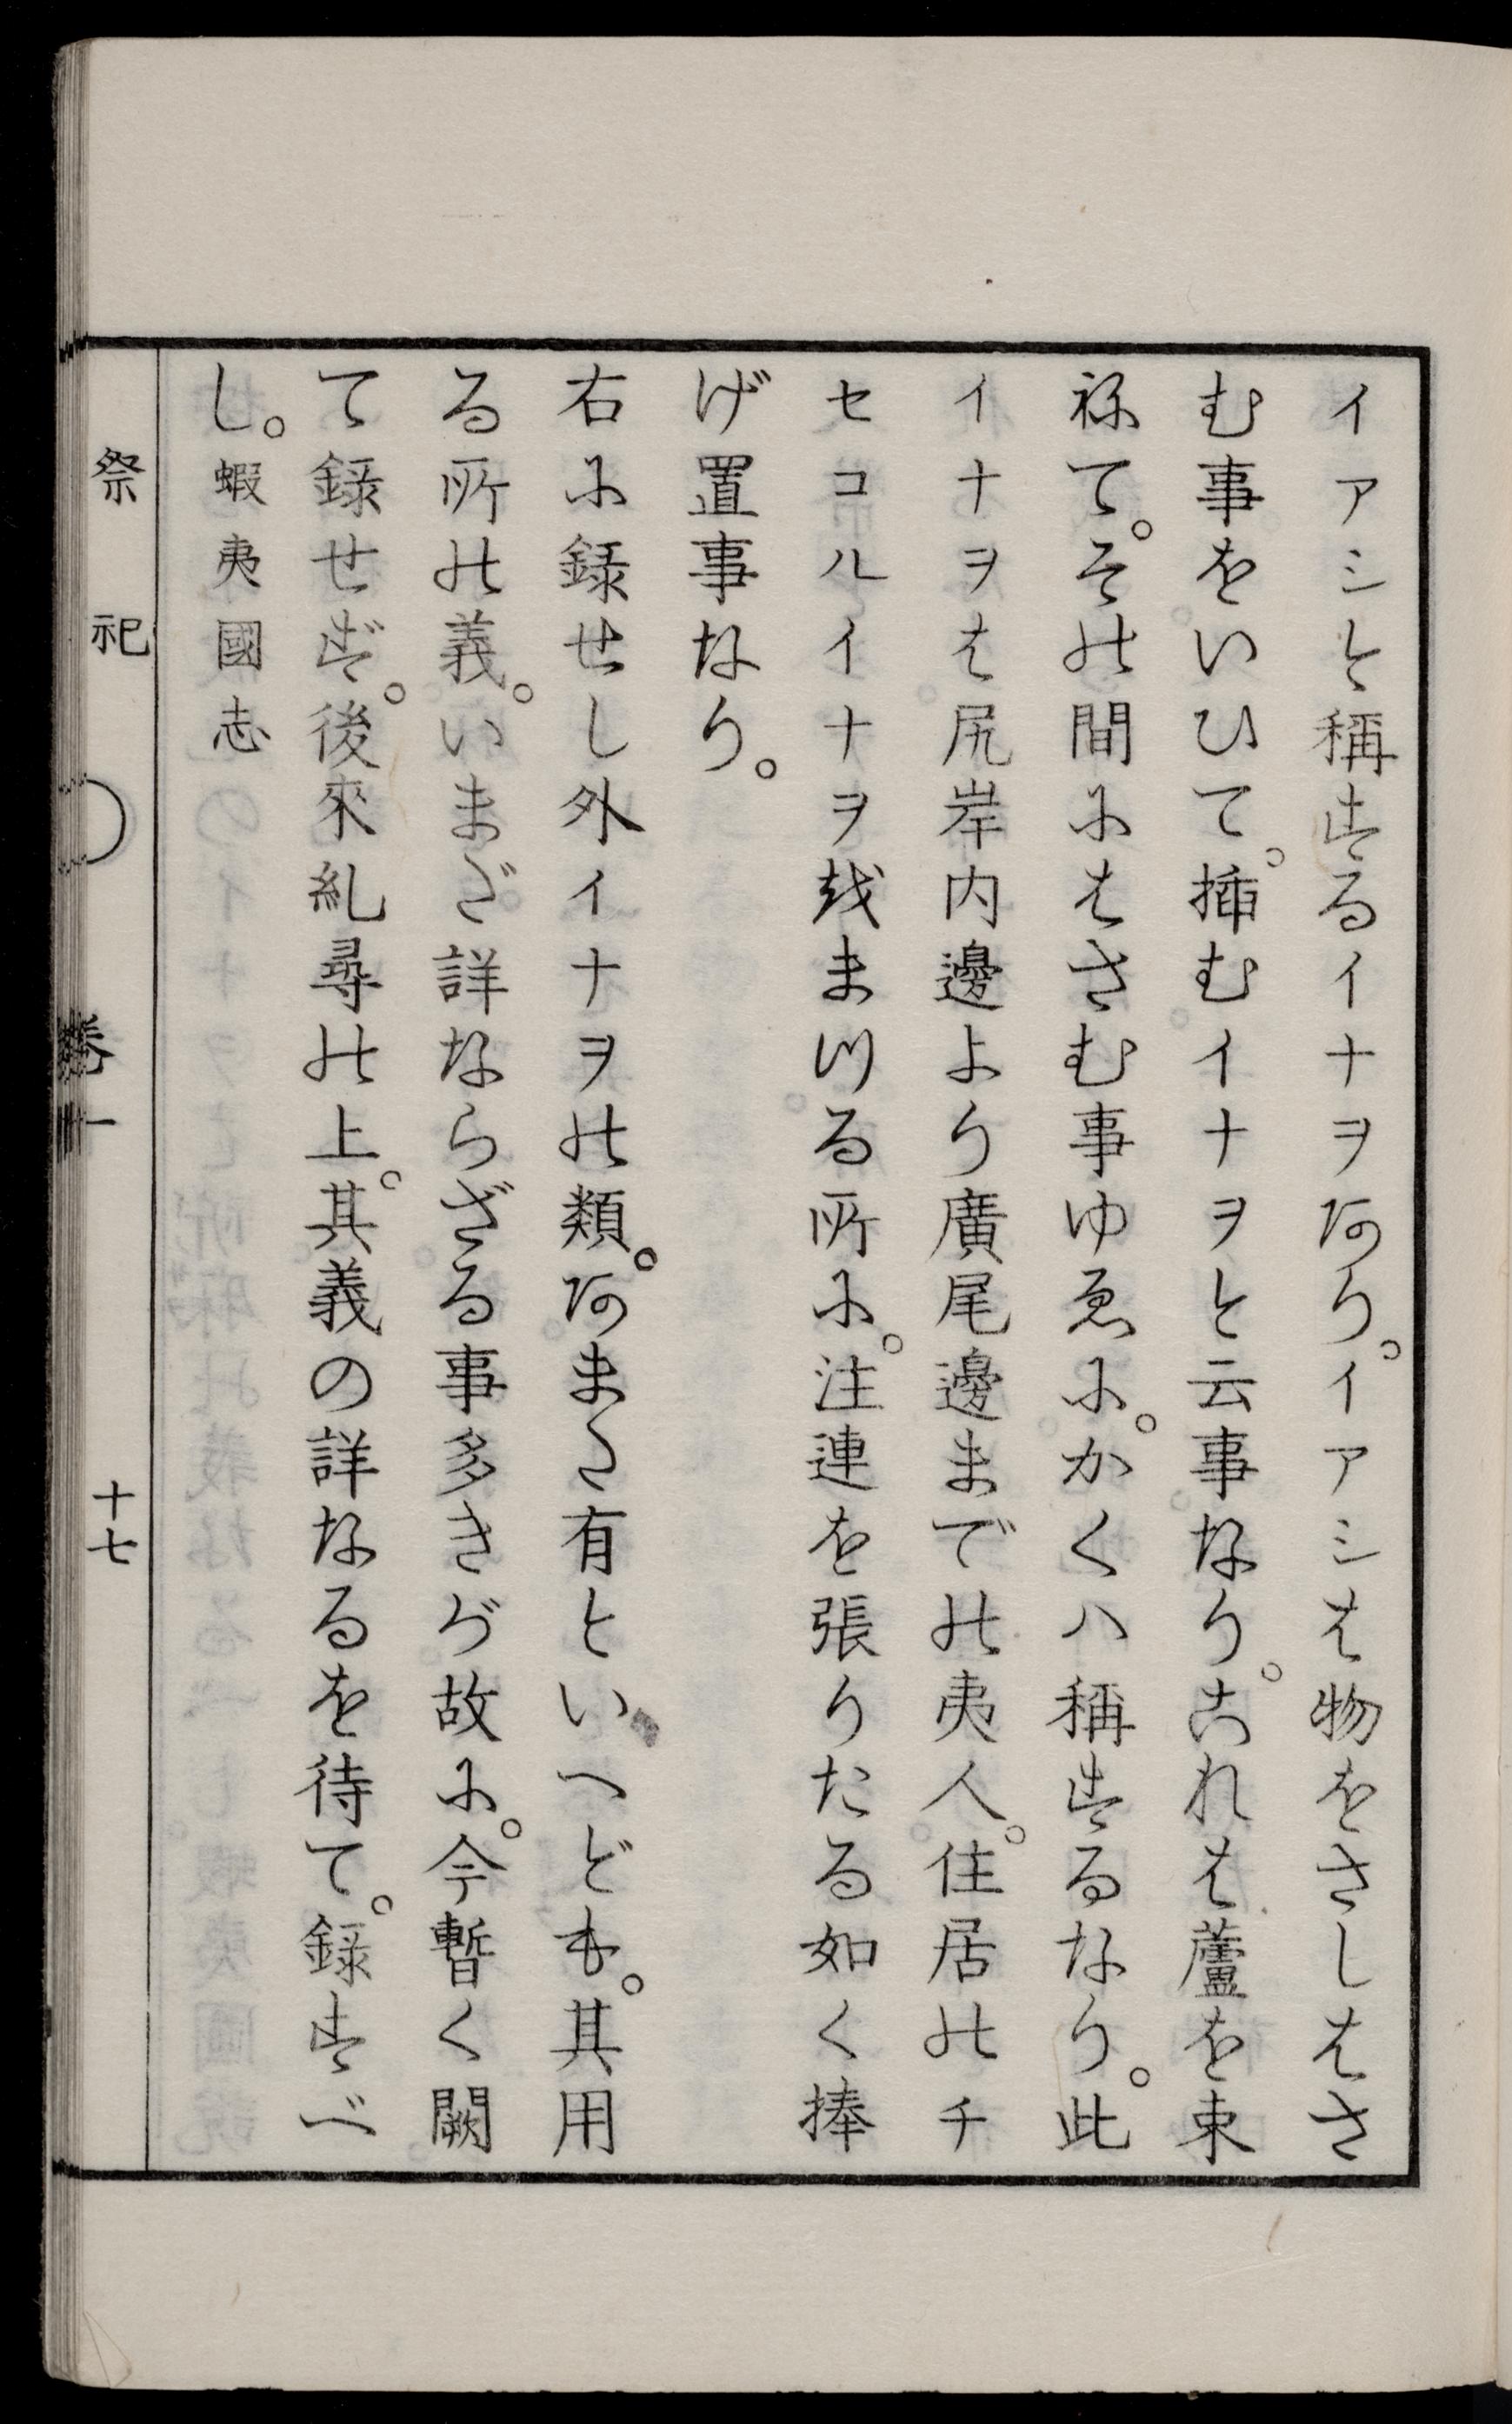 イアシと稱するイナヲあり。イアシは物をさしはさ
む事をいひて。揷むイナヲと云事なり。これは蘆を束
ねて。その間にはさむ事ゆゑに。かくハ稱するなり。此
イナヲは尻岸内邊より廣尾邊までの夷人。住居のチ
セコルイナヲを祭る所に。注連を張りたる如く捧
げ置事なり。
右に錄せし外イナヲの類。あまた有といへども。其用
る所の義。いまだ詳ならざる事多きが故に。今暫く闕
て錄せず。後來糺尋の上。其義の詳なるを待て。錄すべ
し。蝦夷國志
祭祀 卷一 十七